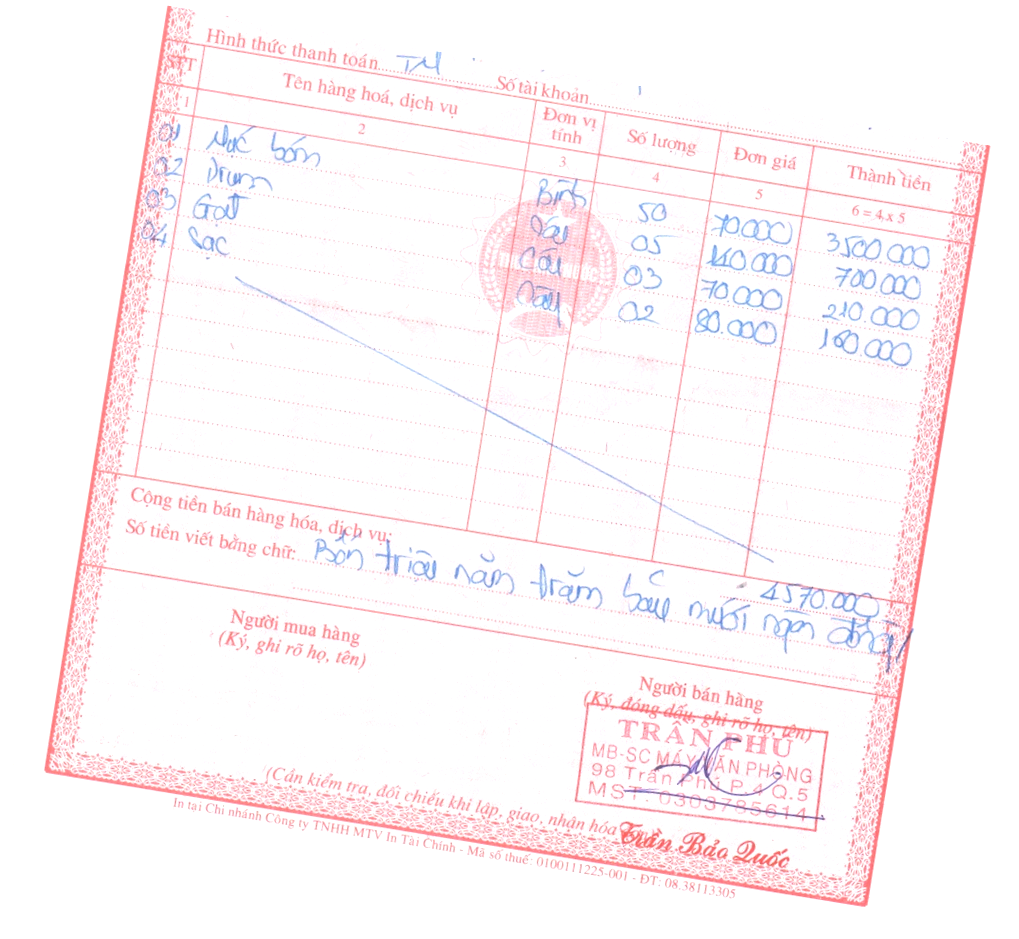 Hình thức thanh toán TM Số tài khoản
STT Tên hàng hoá, dịch vụ Đơn vị tính Số lượng Đơn giá Thành tiền
1 2 3 4 5 6 = 4 x 5
01 Mực bơm Bình 50 70000 3500 000
02 Drum Cây 05 140 000 700 000
03 Gạt Cây 03 70 000 210 000
04 Sạc Cây 02 80.000 160 000
Cộng tiền bán hàng hóa, dịch vụ: 4570.000
Số tiền viết bằng chữ: Bốn triệu năm trăm bảy mươi ngàn đồng
Người mua hàng
(Ký, ghi rõ họ, tên)
Người bán hàng
(Ký, đóng dấu, ghi rõ họ, tên)
TRẦN PHÚ
MB-SC MÁY VĂN PHÒNG
98 Trần Phú P.4 Q.5
MST: 0303785614
(Cần kiểm tra, đối chiếu khi lập, giao, nhận hóa
Trần Bảo Quốc
In tại Chi nhánh Công ty TNHH MTV In Tài Chính - Mã số thuế: 0100111225-001 - ĐT: 08.38113305